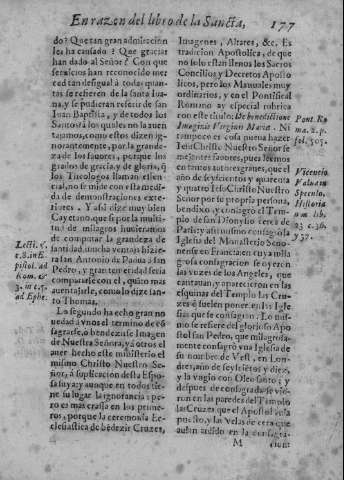 En razon del libro de la Sancta, 177
do? Que tan gran admiracion
les ha causado? Que gracias
han dado al Señor? Con que
servicios han reconocido mer
ced tan desigual à todas quan-
tas se refieren de la santa Iua-
na, y se pudieran referir de san
Iuan Baptista, y de todos los
Santos? à los quales no la aven
tajamos, como estos dizen ig-
norantemente, por la grande-
za de los favores, porque los
grados de gracia, y de gloria, q̃
los Theologos llaman essen-
cial, no se mide con esta medi-
da de demonstraciones exte-
riores. Y assi dize muy bien
Cayetano, que si por la multi-
tud de milagros huvieramos
de computar la grandeza de
santidad, uno havia ventaja hizie-
ra san Antonio de Padua à san
Pedro, y gran temeridad seria
compararse con el, quanto mas
aventajarle, como lo dize san-
to Thomas.
Lo segundo ha echo gran no
vedad à unos el termino de cõ
sagrarse, ò bendezirse Imagen
de Nuestra Señora, yà otros el
aver hecho este misterio el
mismo Christo Nuestro Se-
ñor, à suplicacion desta Espo-
sa suya: y aunque en todos tie-
ne su lugar la ignorancia: pe-
ro es mas crassa en los prime-
ros, porque la ceremonia Ec-
clesiastica de bẽdezir Cruzes,
Lect. 1.
ad Ephe.
Imagenes, Altares, &c. Es
tradicion Apostolica, de que
no solo estan llenos los Sacros
Concilios y Decretos Aposto
licos, pero los Manuales muy
ordinarios, y en el Pontifical
Romano ay especial rubrica
con este titulo: De benedictione
Imaginis Virginis Mariæ. Ni
tampoco es cosa nueva hazer
Iesu Christo Nuestro Señor se
mejantes favores, pues leemos
en tantos autores graves, que el
año de seyscientos y quarenta
y quatro Iesu Christo Nuestro
Señor por su propria persona,
bendixo, y consagrò el Tem-
plo de san Dionysio cerca de
Paris: y assi mismo consagrò la
Iglesia del Monasterio Seno-
nense en Francia en cuya mila
grosa consagracion se oyeron
las vozes de los Angeles, que
cantavan, y aparecieron en las
esquinas del Templo las Cru-
zes q̃ suelen poner en las Igle
sias que se consagran. Lo mis-
mo se refiere del glorioso Apo
stol san Pedro, que milagrosa-
mente consagrò una Iglesia de
su nombre de Vest, en Lon-
dres, año de seyscientos y diez,
y la ungio con Oleo santo; y
despues de consagrada se vie-
ron en las paredes del Templo
las Cruzes que el Apostol avia
puesto, y las Velas de cera que
avian ardido en la consagra-
Pont. Ro
ma. 2. p.
fol. 505.
Vicencio
Speculo,
Historia
37.
M cion: